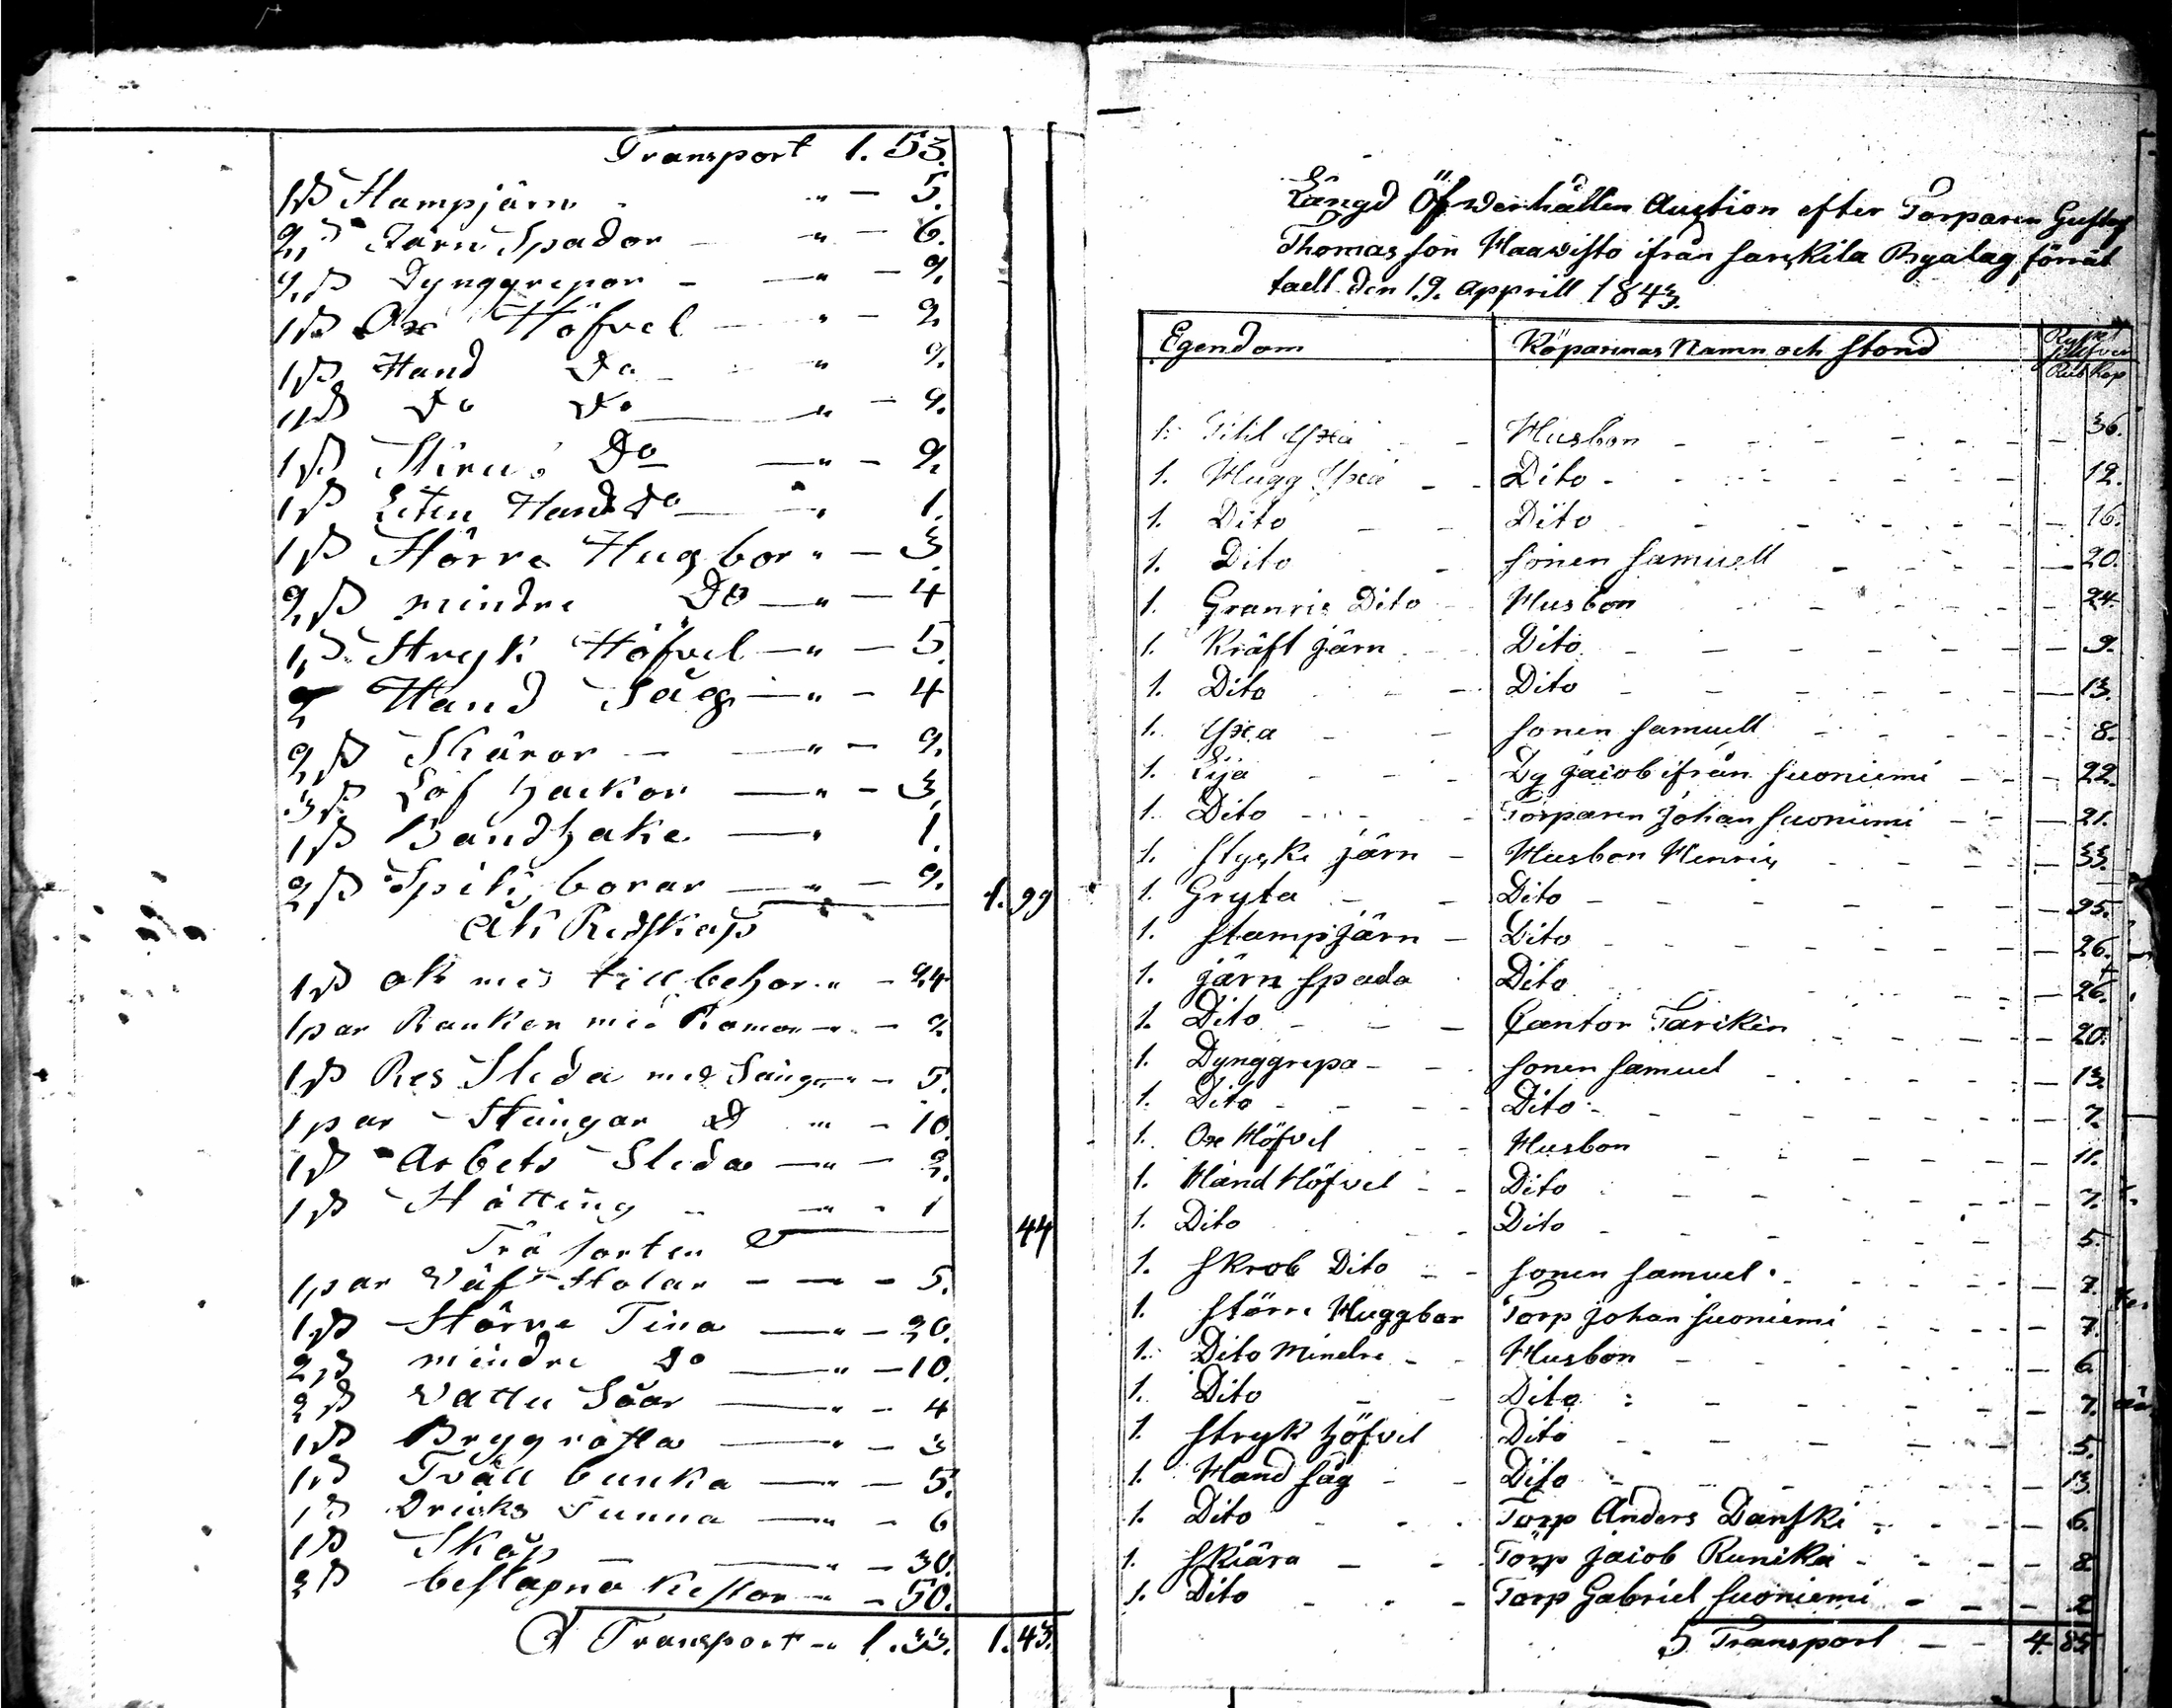 Transport 1. 53.
1 St Stampjärn " — 5.
2 St Järn Spador — " — 6.
2 St Dynggrepar — " — 2.
1 St Oxe Höfvel — " — 2
1 St Hand Do — " 2.
1 St Do Do — " — 2.
1 St Do — " — 2.
1 St Liten Hand Do — " 1.
1 St Större Hugbor " — 3.
2 St mindre Do — " — 4
1 St Stryk Höfvel — " — 5
2 Hand Såg — " — 4
2 St Skäror — — " — 2.
3 St Löf hackor — " — 3.
1 St Bandhake — " 1.
2 St Spik borar — " — 2. 1. 99
Åk Redskap
1 St ok med tillbehör " — 24
1 par Rankor med Ramor — " — 2
1 St Res Sleda med Stänger " — 5.
1 par Stångar D " — 10.
1 St Arbets Sleda — " — 2.
1 St Hötting " — " — 1 44
Trä sorter
1 par Wäf Stolar — — — 5.
1 St Större Tina — " — 20.
2 St mindre Do — " — 10.
2 St Vattu Såar — " — 4
1 St Brygrosta — " — 3
1 St Tvätt bunka — " — 5.
1 St Dricks Tunna — " — 6
1 St Skåp — — " — 30.
2 St beslagna Kistor — " — 50.
Transport — " 1.33. 1.43.
Längd Öfwerhållen Auction efter Torparen Gustaf
Thomas son Haawisto ifrån Sarkila Byalag förrät
taell den 19. apprill 1843.
Egendom Köparnas Namn och stond Ryskt Silfver
Rub Kop
1. Till Yxa — Husbon — 36.
1. Hugg Yxa — Dito — 12.
1. Dito — Dito — 16.
1. Dito — sonen Samuell — 20.
1. Granris Dito Husbon — 24.
1. Kräft järn Dito — 9.
1. Dito — Dito — 13.
1. Yxa — sonen Samuell — 8.
1. Lija — Dg Jacob ifrån Suoniemi — 22.
1. Dito — Torparen Johan Suoniemi — 21.
1. Stycke järn — Husbon Henric — 33.
1. Gryta — Dito — 95.
1. Stampjärn — Dito — 26.
1. järn spada Dito — 26.
1. Dito — Cantor Tarikin — 20.
1. Dynggrepa — sonen Samuel — 13.
1. Dito — Dito — 7.
1. Oxe Höfvel — Husbon — 11.
1. Hand Höfvel — Dito — 7.
1. Dito — Dito — 5.
1. Skrob Dito — sonen Samuel — 7.
1. Större Huggbor Torp Johan Suoniemi — 7.
1. Dito Mindre — Husbon — 6.
1. Dito — Dito — 7.
1. Stryk höfvel Dito — 5.
1. Hand såg — Dito — 13.
1. Dito — Torp Anders Danski — 6.
1. Skiära — Torp Jacob Runika — 8.
1. Dito — Torp Gabriel Suoniemi — 2
Transport — 4. 85.